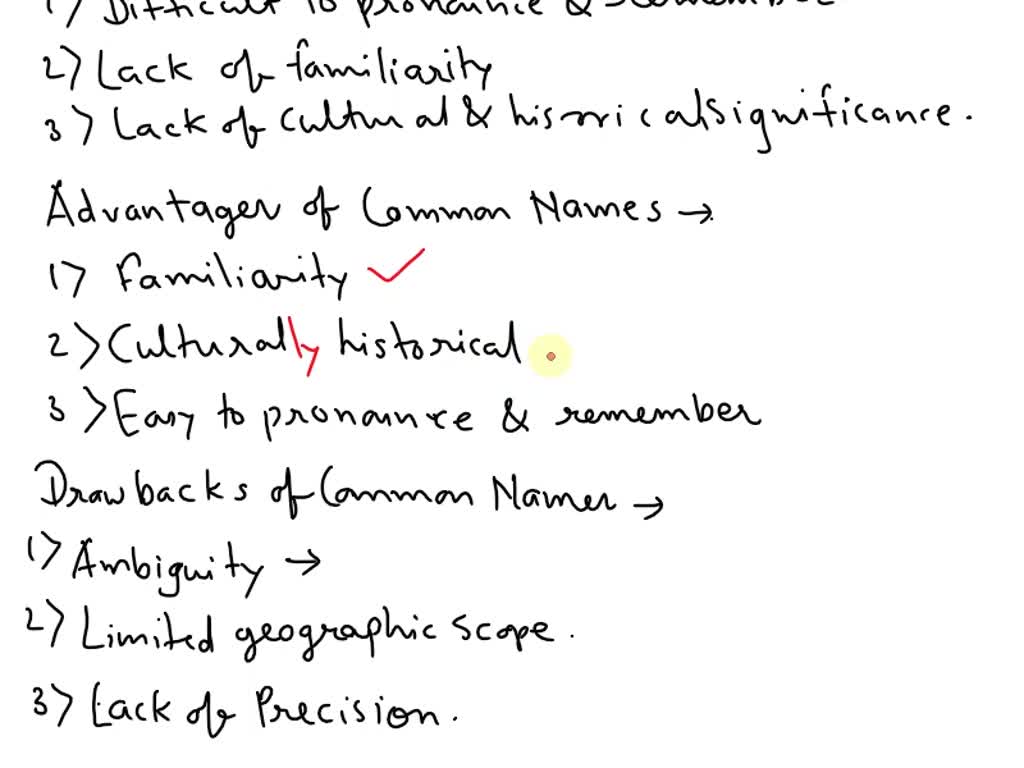 1) Difficult to pronounce & remember
2) Lack of familiarity
3) Lack of cultural & historical significance.
Advantages of Common Names →
1) Familiarity ✓
2) Culturally historical
3) Easy to pronounce & remember
Drawbacks of Common Names →
1) Ambiguity →
2) Limited geographic scope.
3) Lack of Precision.